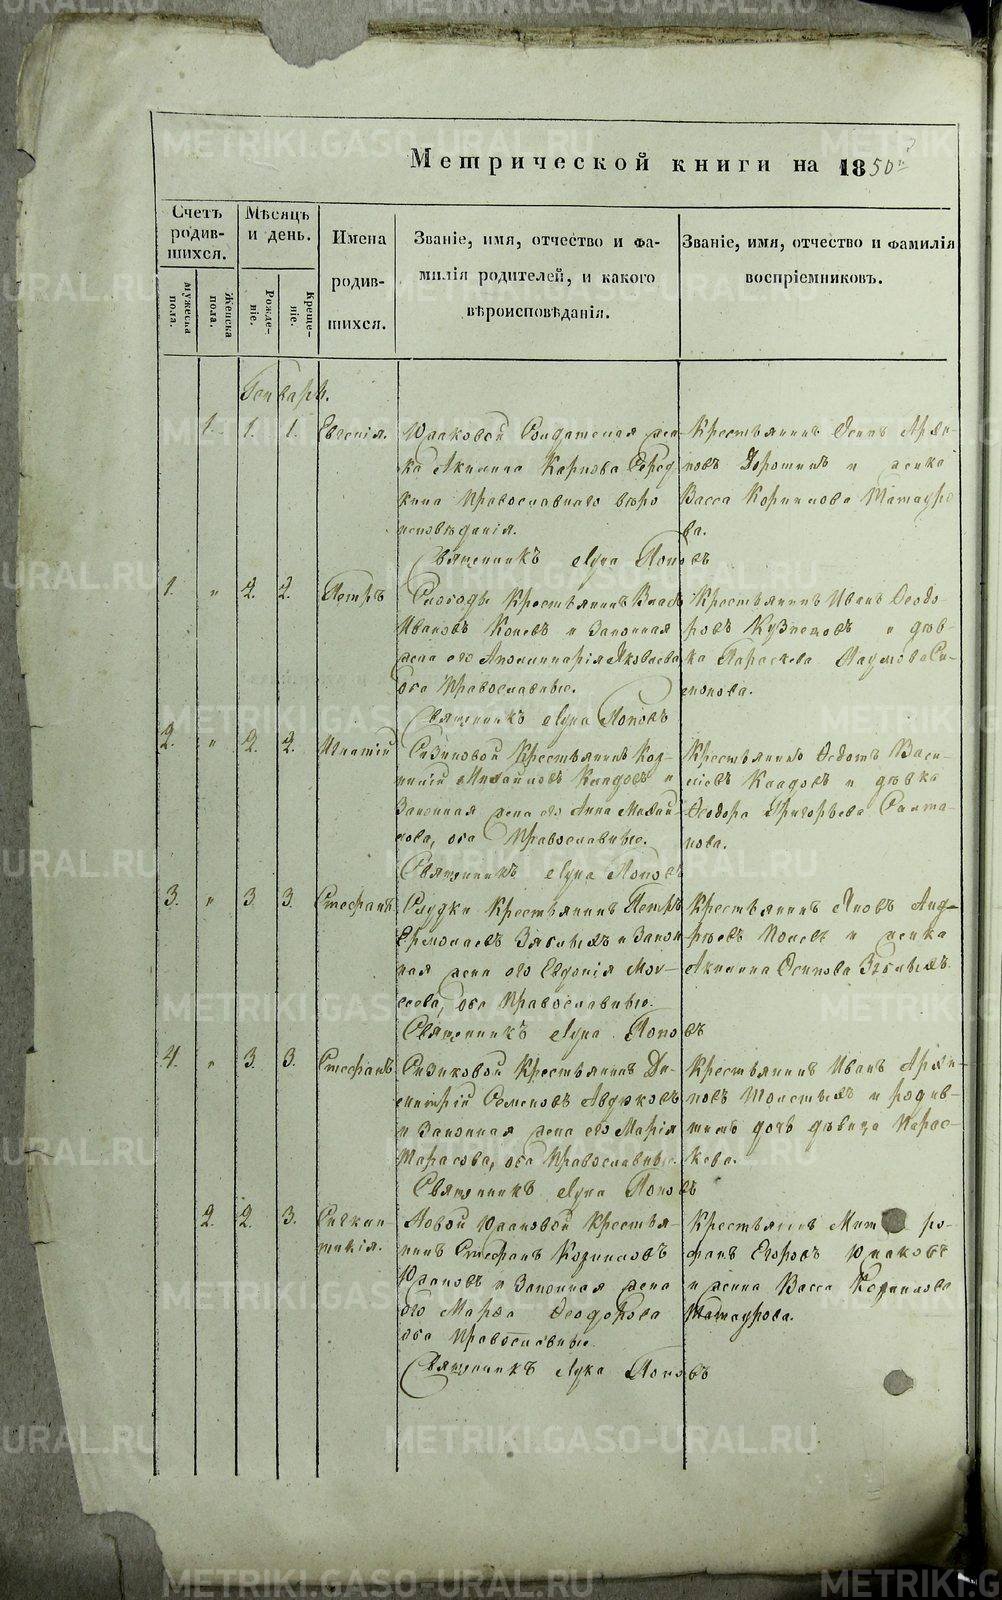 METRIKI.GASO-URAL.RU
Метрической книги на 1850й
Счетъ родив-шихся.
Мѣсяцъ и день.
Имена родив-шихся.
Званіе, имя, отчество и фа-
милія родителей, и какого
вѣроисповѣданія.
Званіе, имя, отчество и фамилія
воспріемниковъ.
мужеска пола.
Женска пола.
Рожде-ніе.
Креще-ніе.
Генварь.
1. 1. 1. Евгенія.
Солдатская жен-
ка Акилина Карпова
Православнаго вѣро
исповѣданія.
Священникъ Лука Поповъ
Крестьянинъ Осипъ
и женка
Васса Корнилова Татауро
ва.
1. " 2. 2. Петръ
Слободы Крестьянинъ
Ивановъ Коневъ и Законная
жена его Аполлинарія Яковлева
оба Православные.
Священникъ Лука Поповъ
Крестьянинъ Иванъ Ѳеодо-
ровъ Кузнецовъ и дѣв-
ка Параскева Наумова Си-
монова.
2. " 2. 2. Игнатій
Крестьянинъ Кор-
нилій Михайловъ и
Законная жена его Анна Михай
лова, оба Православные.
Священникъ Лука Поповъ
Крестьянинъ Ѳедотъ Васи-
льевъ и дѣвка
Ѳеодора Григорьева Салта-
нова.
3. " 3. 3. Стефанъ
Слудки Крестьянинъ Петръ
Ермолаевъ Зяблыхъ и Закон
ная жена его Евдокія Мои-
сеева, оба Православные.
Священникъ Лука Поповъ
Крестьянинъ Яковъ Анд-
реевъ и женка
Акилина Осипова Зяблыхъ.
4. " 3. 3. Стефанъ
Крестьянинъ Ди-
митрій Семеновъ Авдюковъ
и Законная жена его Марія
Тарасова, оба Православные.
Священникъ Лука Поповъ
Крестьянинъ Иванъ
Толстыхъ и
дочь дѣвица Парас-
кева.
2. 2. 3. Синкли-
тикія.
Новой Крестья-
нинъ Стефанъ Корниловъ
и Законная жена
его Марѳа Ѳеодорова
оба Православные.
Священникъ Лука Поповъ
Крестьянинъ Митро-
фанъ Егоровъ
и женка Васса Корнилова
Татаурова.